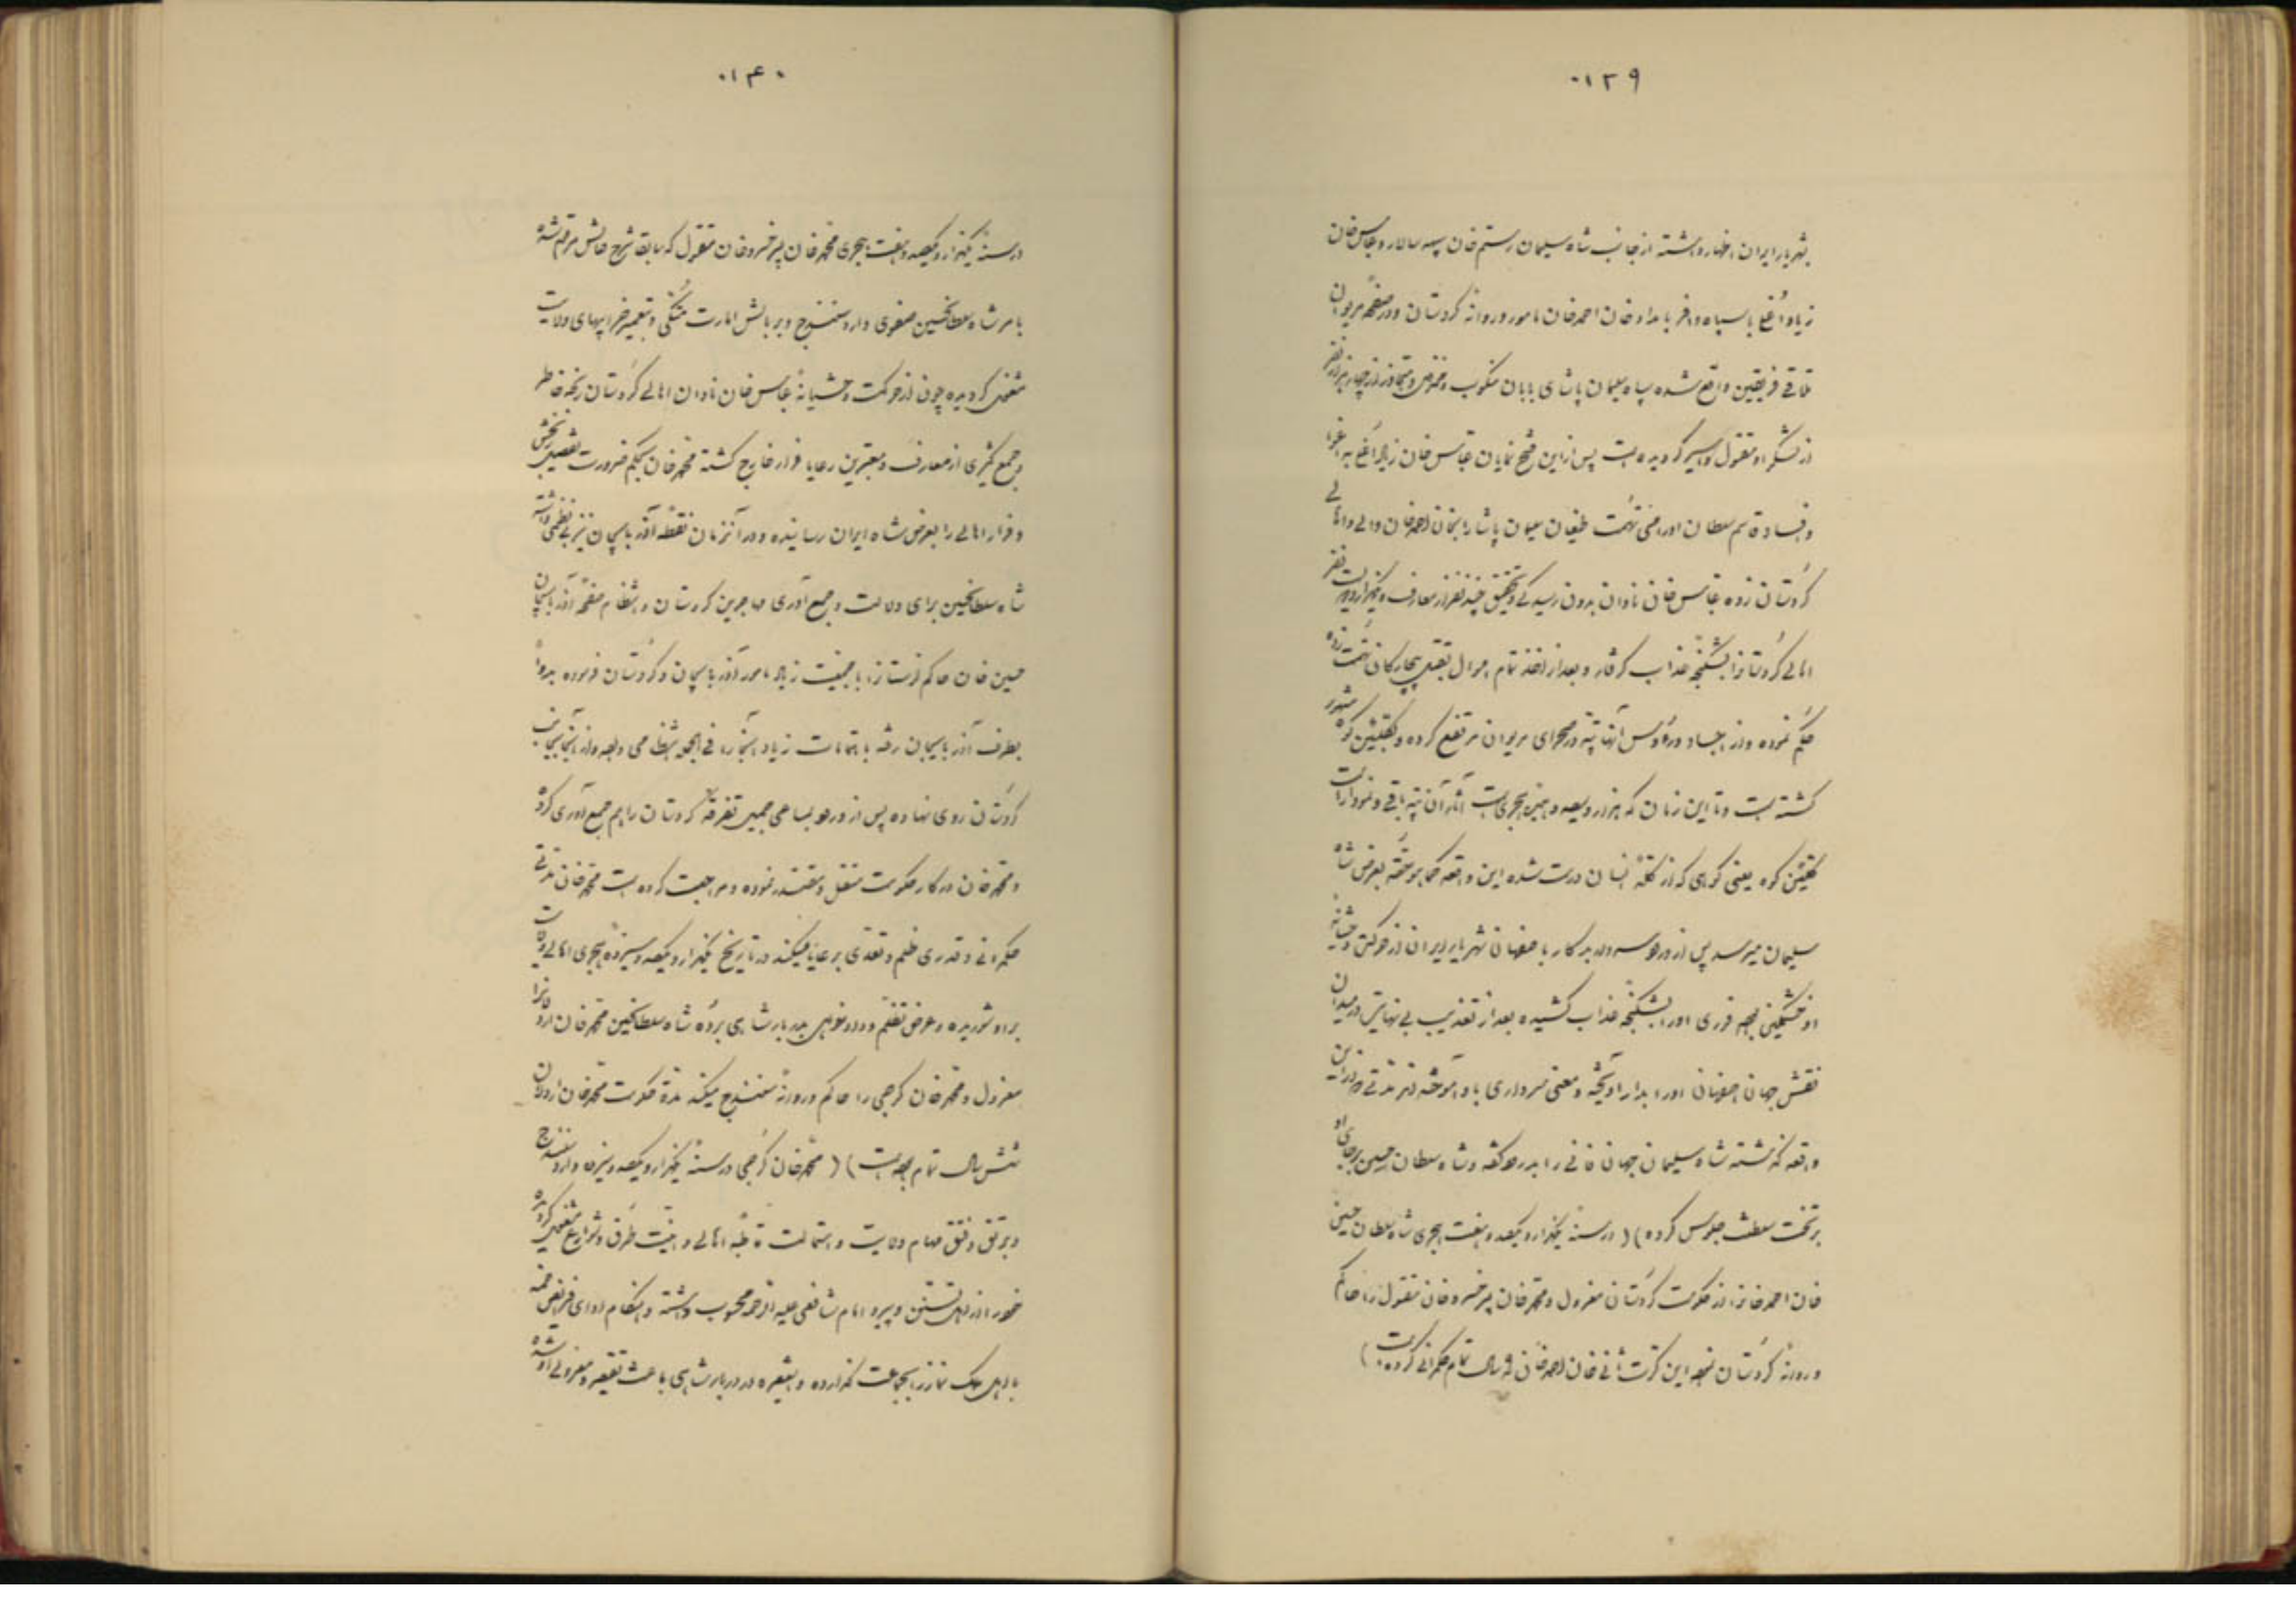 ۰۱۳۹
بشهریار ایران اظهار داشته از جانب شاه سلیمان رستم خان سپه سالار و عباس خان
زیاد اُغلی با سپاه وافر بامداد خان احمد خان مامور و روانه کردستان و در صفحه مریوان
تلاقی فریقین واقع شده سپاه سلیمان پاشای بابان منکوب و متجاوز از چهار هزار نفر
از لشکر او مقتول و اسیر گردیده است پس از این فتح نمایان عباس خان زیاد اُغلی به اغوا
و فساد قاسم سلطان اورامی تهمت طغیان سلیمان پاشا را بخان احمد خان والی و اهالی
کردستان زده عباس خان نادان بدون رسیدگی و تحقیق چند نفر از معارف و یکهزار و دویست نفر
اهالی کردستانرا بشکنجه عذاب گرفتار و بعد از اخذ تمام اموال بقتل بیچارگان تهمت زده
حکم نموده و از اجساد و رؤس آنها تپه در صحرای مریوان مرتفع کرده و بکلَّشین کوه مشهور
گشته است و تا این زمان که هزار و سیصد و هجری است آثار آن تپه باقی و نمودار است
کوه یعنی کوهی که از کله انسان درست شده این واقعه کما هو حقه بعرض شاه
سلیمان میرسد پس از ورود سپه سالار باصفهان شهریار ایران از حرکت وحشیانه
او خشمگین بوده فوری او را بشکنجه عذاب کشیده بعد از تعذیب بی نهایتش در میدان
نقش جهان اصفهان او را بدار آویخته و معنی سرداری باو آموخته اند مدتی از این
واقعه گذشته شاه سلیمان جهان فانی را بدرود گفته و شاه سلطان حسین برجای او
بر تخت سلطنت جلوس کرده) (در سنهٔ یکهزار و یکصد و هفت هجری شاه سلطان حسین
خان احمد خانرا از حکومت کردستان معزول و محمد خان پسر خسرو خان مقتول را حاکم
و روانهٔ کردستان نموده این کرت ثانی خان احمد خان سال تمام حکمرانی کرده است)
۰۱۴۰
در سنهٔ یکهزار و یکصد و هفت هجری محمد خان پسر خسرو خان مقتول که سابقا شرح حالش مرقوم شده
بامر شاه سلطانحسین صفوی وارد سنندج و بر بالش امارت متکی و بتعمیر خرابیهای ولایت
مشغول گردیده چون از حرکت وحشیانهٔ عباس خان نادان اهالی کردستان رنجه خاطر
و جمع کثیری از معارف و معتبرین رعایا فرار خارج گشته محمد خان بحکم ضرورت تفصیل رنجش
و فرار اهالی را بعرض شاه ایران رسانیده و در آنزمان نقطه آذربایجان نیز بی نظمی داشته
شاه سلطانحسین برای دلالت و جمع آوری مهاجرین کردستان و انتظام صفحه آذربایجان
حسین خان حاکم لرستانرا با جمعیت زیاد مامور آذربایجان و کردستان فرموده بدواً
بطرف آذربایجان رفته باهتمامات زیاد آنجا را فی الجمله انتظامی داده و از آنجا بجانب
کردستان روی نهاده پس از ورود بمساعی جمیله تفرقهٔ کردستان را هم جمع آوری کرده
و محمد خان در کار حکومت مستقل و مقتدر نموده و مراجعت کرده است محمد خان مدتی
حکمرانی و قدری ظلم و تعدی برعایا میکند در تاریخ یکهزار و یکصد و سیزده هجری اهالی ولایت
بر او شوریده و عرض تظلم و دادخواهی بدربار شاهی برده شاه سلطانحسین محمد خان را
معزول و محمد خان گرجی را حاکم و روانهٔ سنندج میکند مدة حکومت محمد خان اردلان
شش سال تمام بوده است) (محمد خان گرجی در سنهٔ یکهزار و یکصد و سیزده وارد سنندج
و برتق و فتق مهام ولایت و استمالت قاطبهٔ اهالی و امنیت طرق و شوارع مشغول گردیده
خود را از اهل تسنن و پیرو امام شافعی علیه الرحمه محسوب داشته و هنگام ادای فرایض خمسه
با اهل بلد نماز را بجماعت گذارده و اینفقره در دربار شاهی باعث تقصیر و معزولی او شده